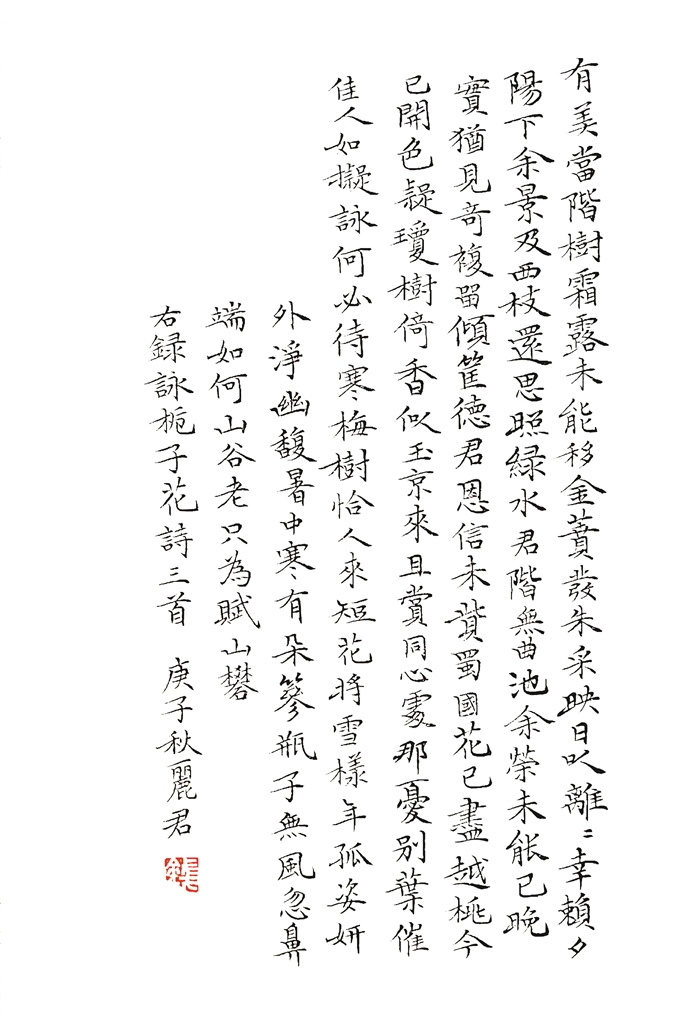 有美當階樹霜露未能移金蕡發朱采映日以離〻幸賴夕
陽下余景及西枝還思照緑水君階無曲池余榮未能已晚
實猶見奇複留傾筐德君恩信未貲蜀國花已盡越桃今
已開色疑瓊樹倚香似玉京來且賞同心處那憂別葉催
佳人如擬詠何必待寒梅樹恰人來短花將雪樣年孤姿妍
外淨幽馥暑中寒有朵篸瓶子無風忽鼻
端如何山谷老只為賦山礬
右録詠栀子花詩三首 庚子秋麗君